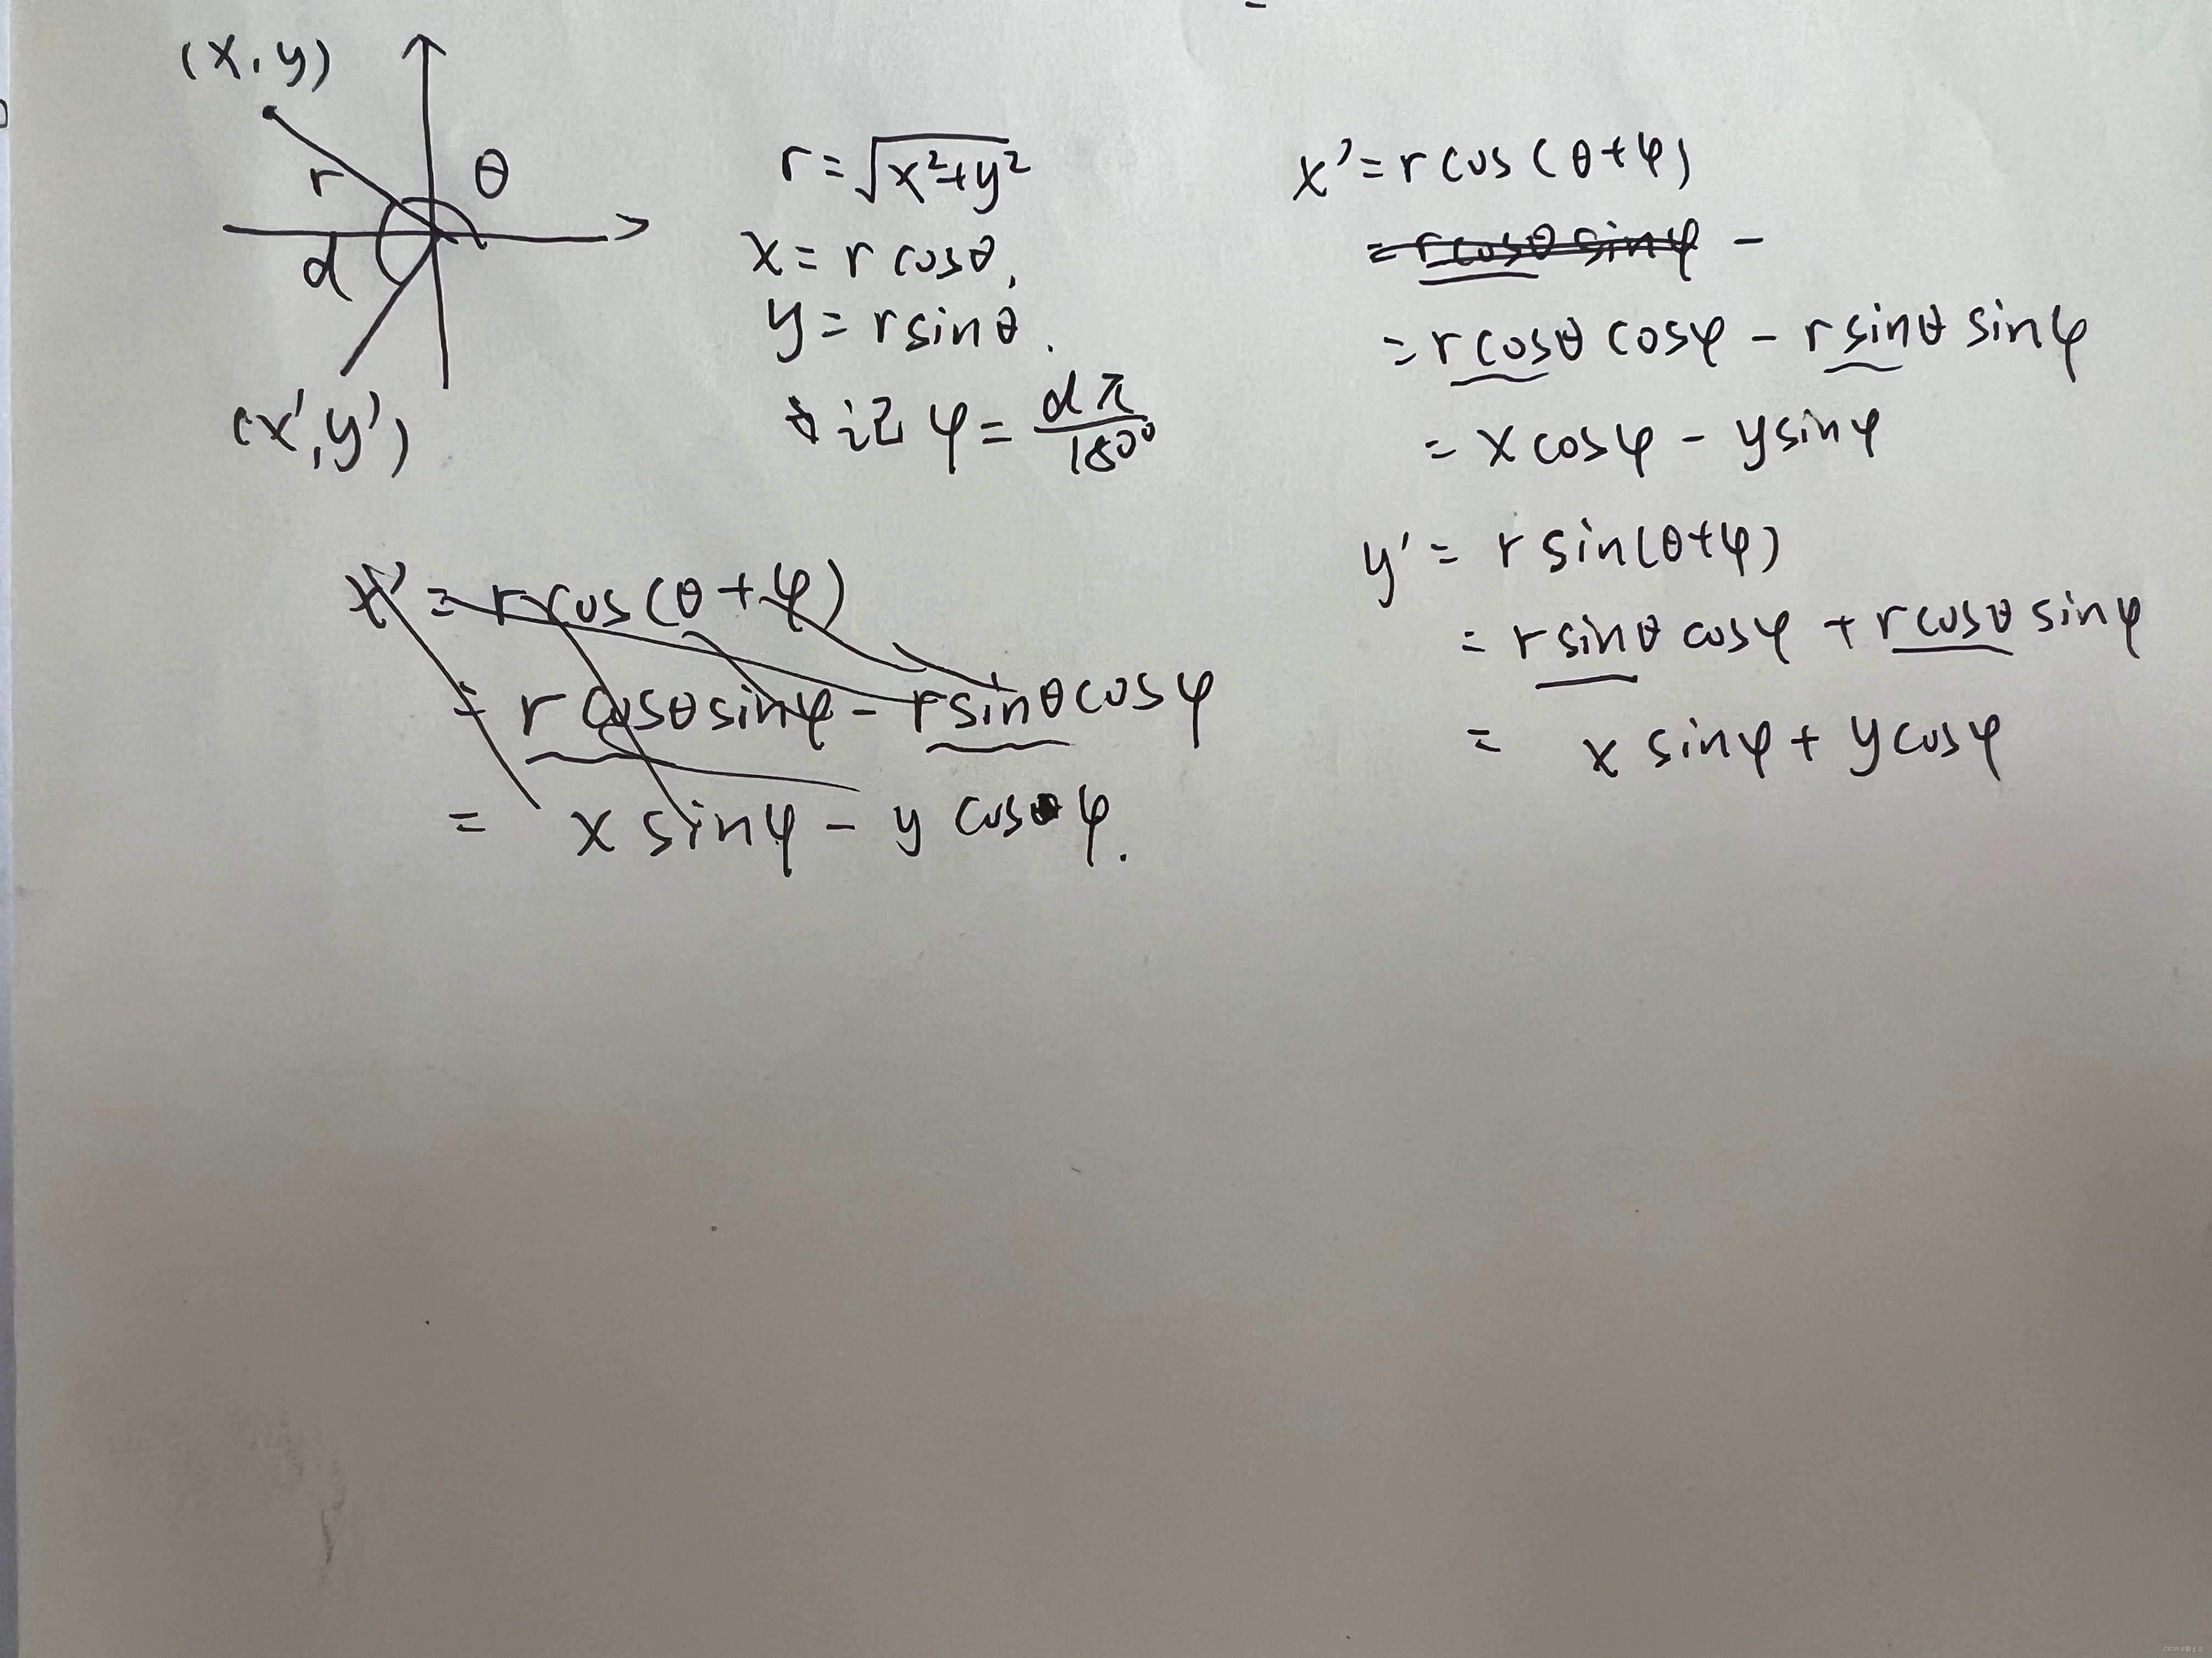 (x, y)
θ
r
d
(x', y')
r = √x²+y²
x = r cosθ,
y = r sinθ.
记 φ = dπ/180°
x' = r cos(θ+φ)
= r cosθ sinφ - r sinθ cosφ
= x sinφ - y cosφ.
x' = r cos(θ+φ)
= r cosθ sinφ -
= r cosθ cosφ - r sinθ sinφ
= x cosφ - y sinφ
y' = r sin(θ+φ)
= r sinθ cosφ + r cosθ sinφ
= x sinφ + y cosφ